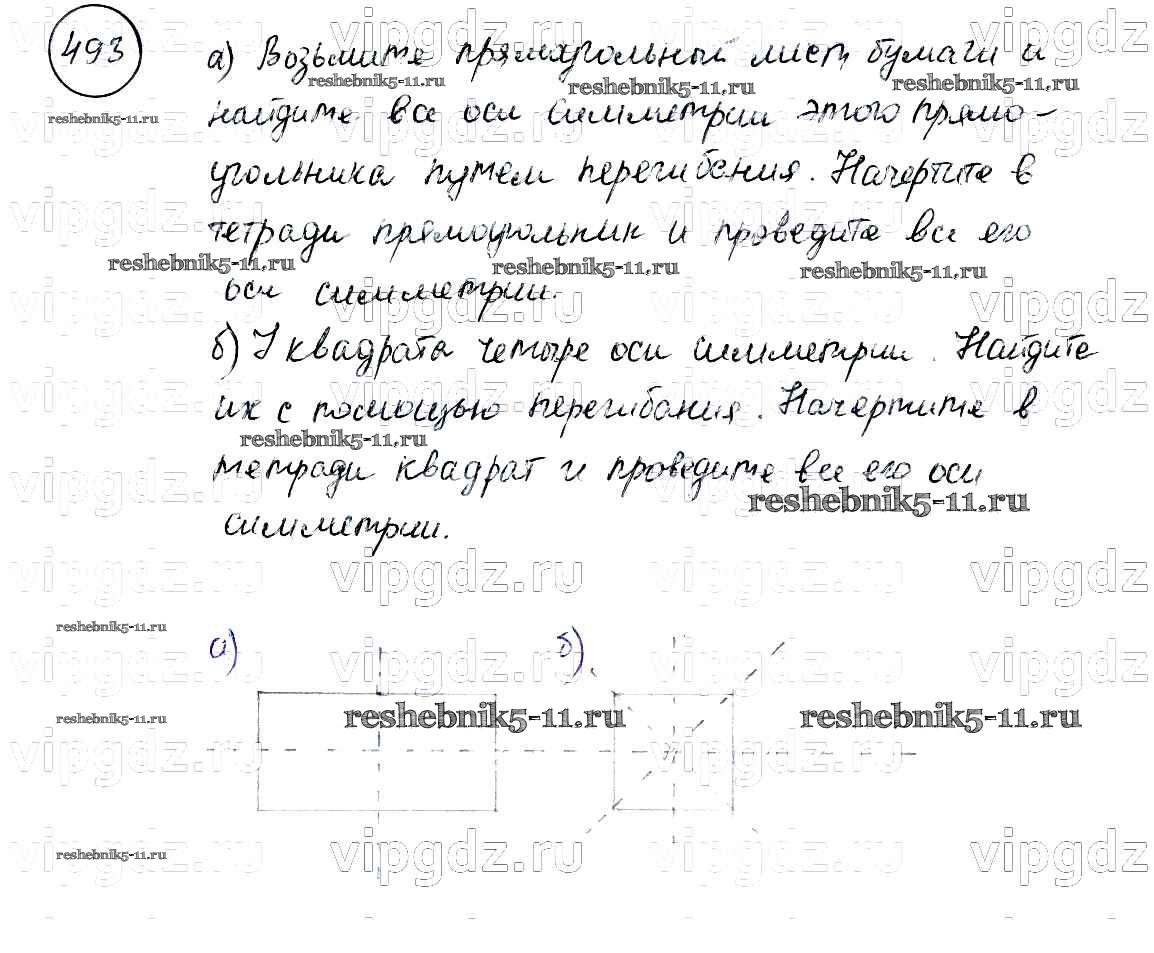 493
а) Возьмите прямоугольный лист бумаги и
найдите все оси симметрии этого прямо-
угольника путем перегибания. Начертите в
тетради прямоугольник и проведите все его
оси симметрии.
б) У квадрата четыре оси симметрии. Найдите
их с помощью перегибания. Начертите в
тетради квадрат и проведите все его оси
симметрии.
а) б)
reshebnik5-11.ru
vipgdz.ru